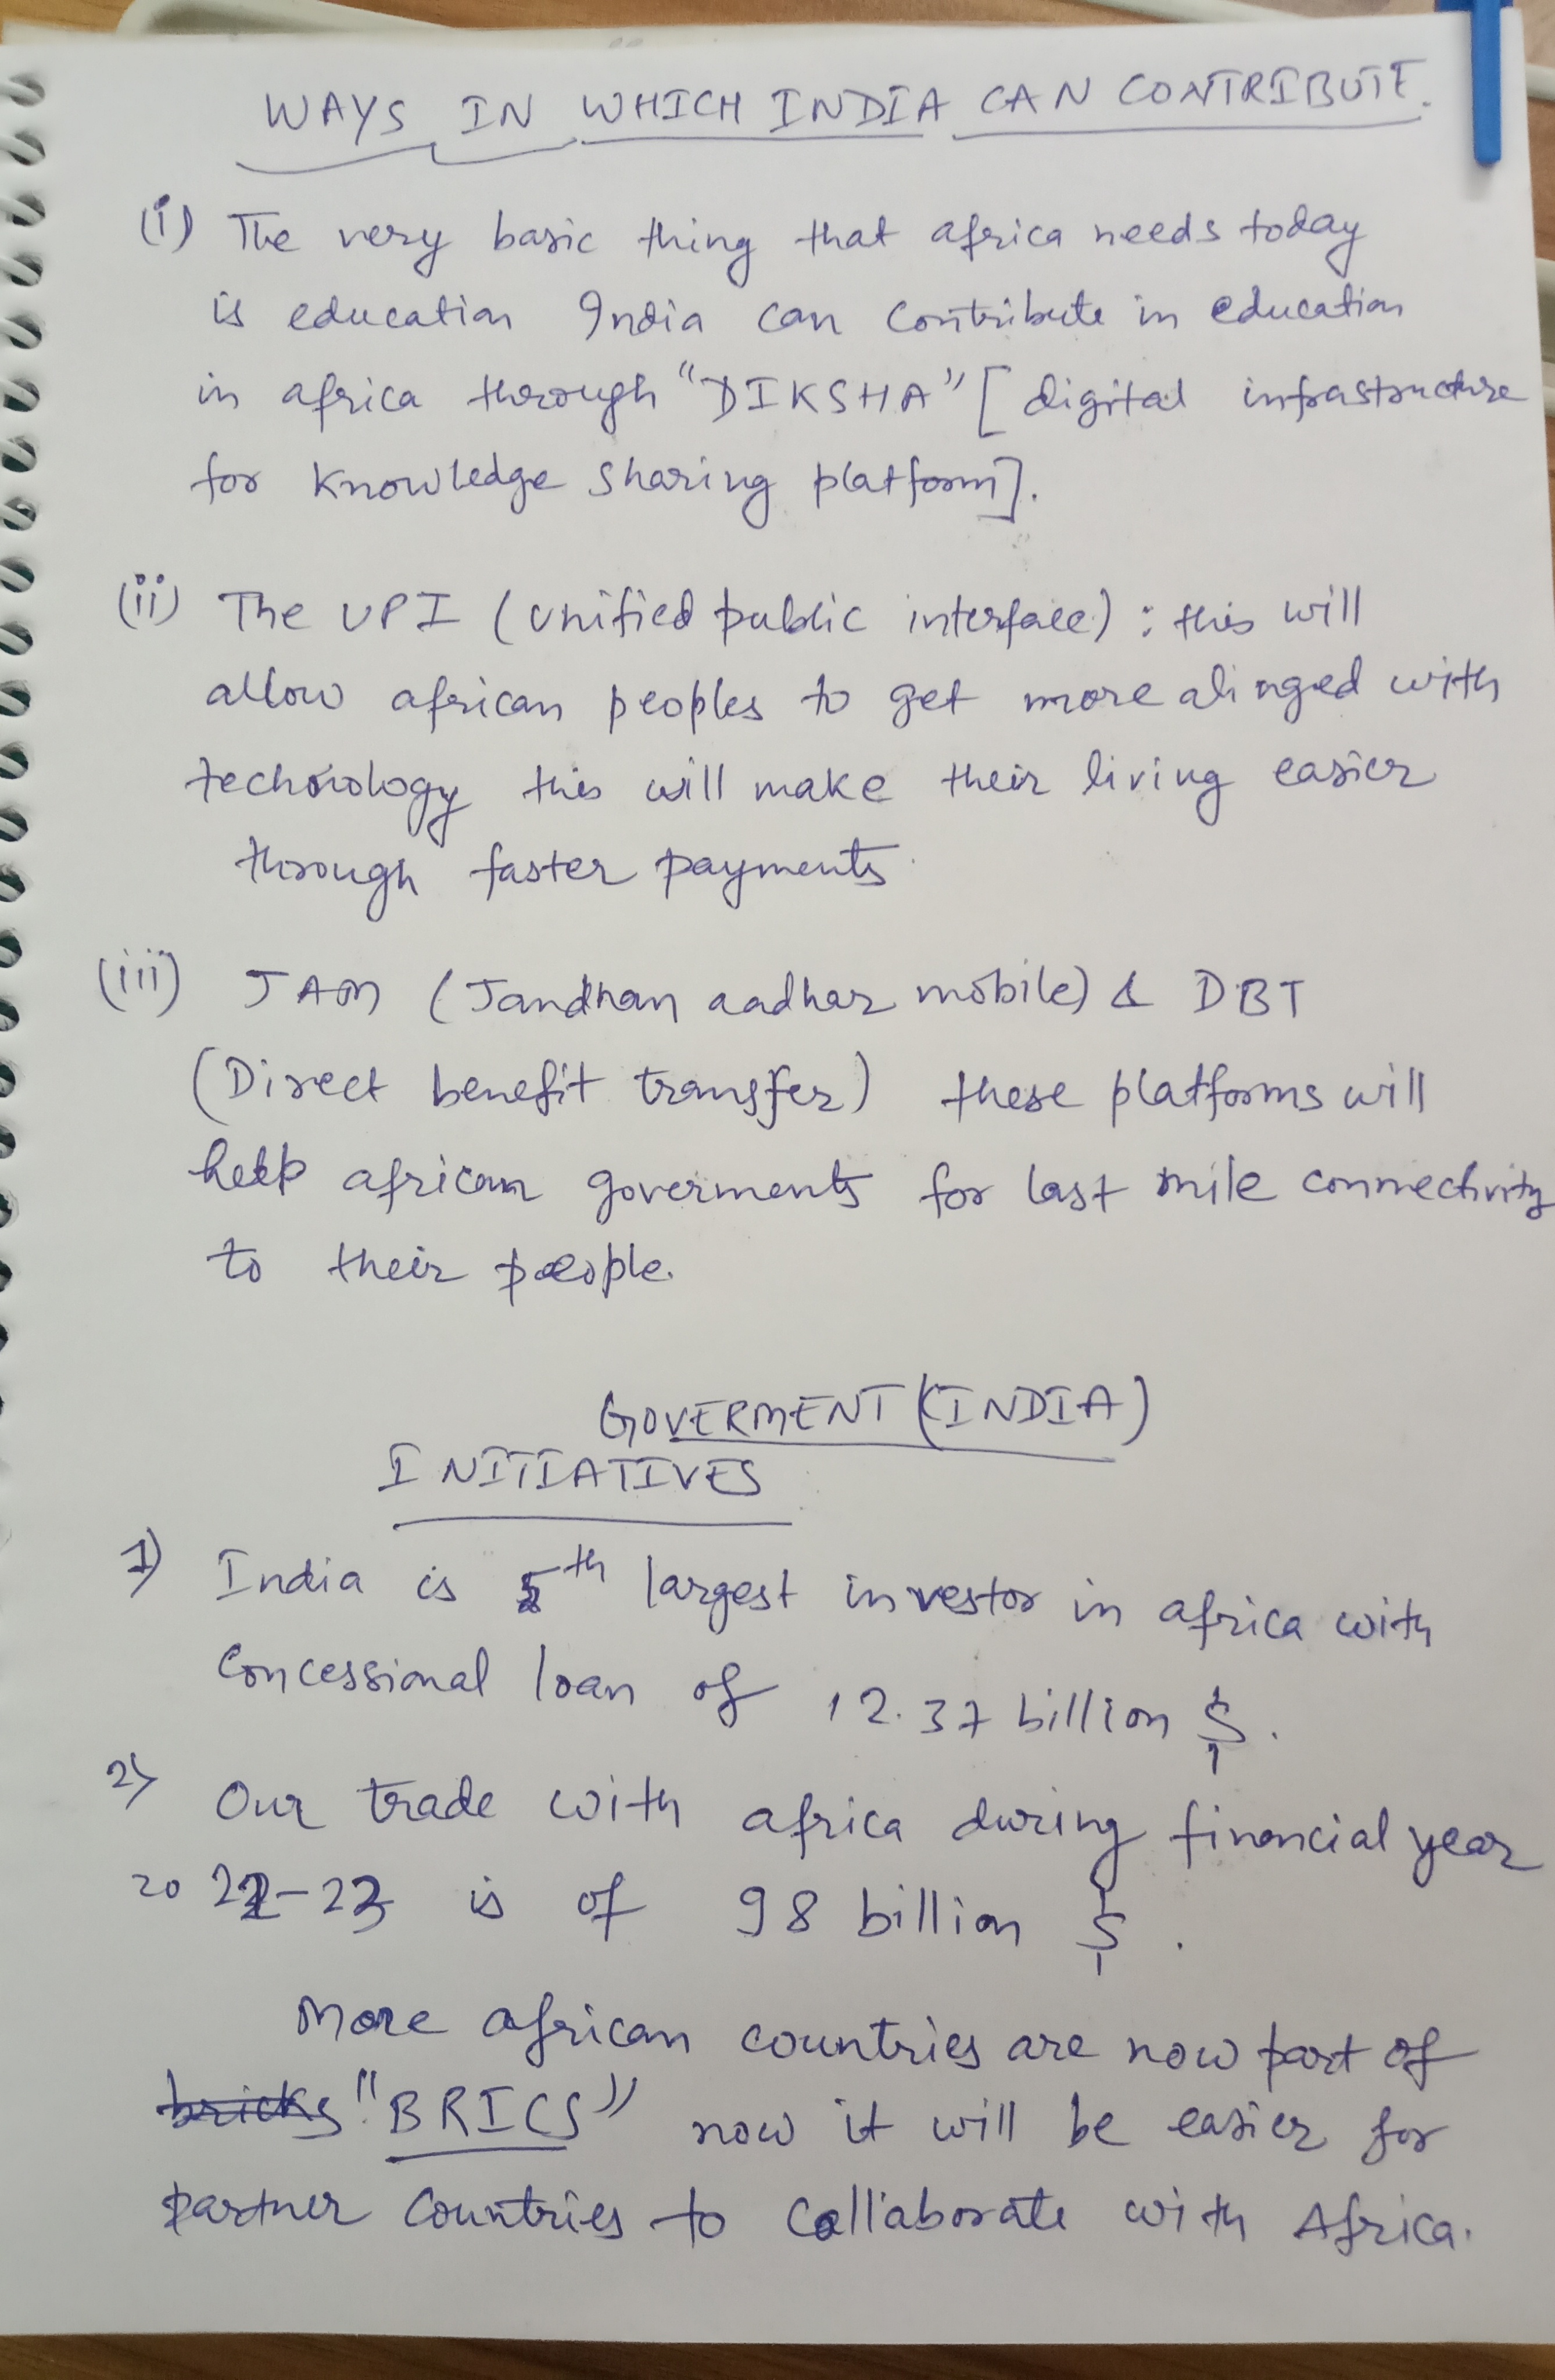 WAYS IN WHICH INDIA CAN CONTRIBUTE.
(i) The very basic thing that africa needs today
is education India can contribute in education
in africa through "DIKSHA" [digital infrastructure
for knowledge sharing platform].
(ii) The UPI (unified public interface) : this will
allow african peoples to get more alinged with
technology this will make their living easier
through faster payments
(iii) JAM (Jandhan aadhar mobile) & DBT
(Direct benefit transfer) these platforms will
help african goverments for last mile connectivity
to their people.
GOVERMENT (INDIA)
INITIATIVES
1) India is 5th largest investor in africa with
concessional loan of 12.37 billion $.
2) Our trade with africa during financial year
2022-23 is of 98 billion $.
More african countries are now part of
bricks "BRICS" now it will be easier for
partner countries to collaborate with Africa.